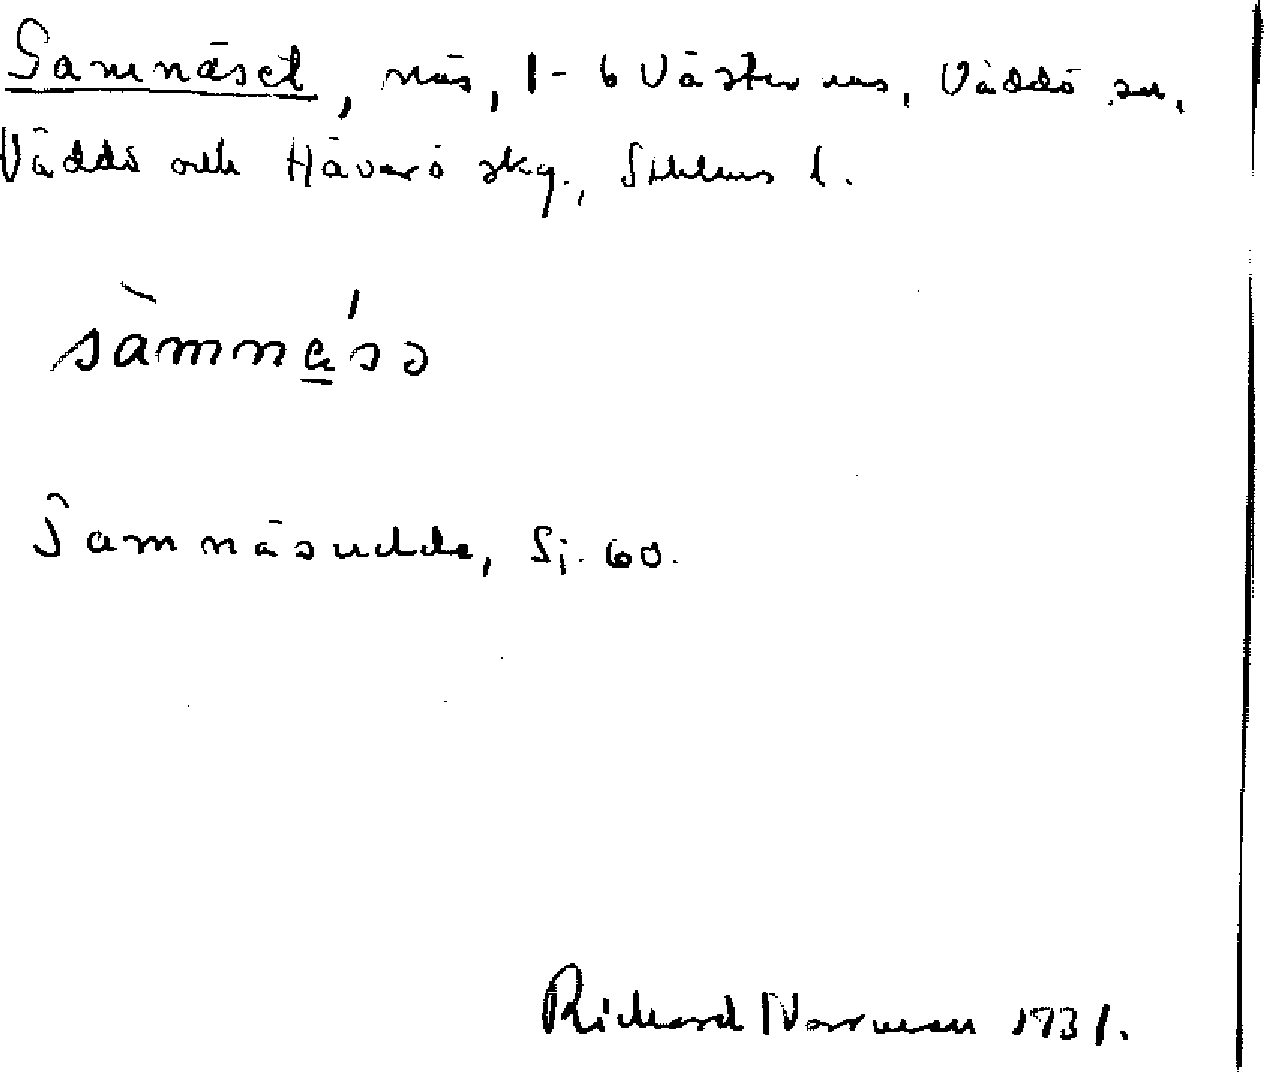 Samnäset, näs, 1-6 Västernäs, Väddö sn,
Väddö och Häverö skg., Sthlms l.
sàmnä́sə
Samnäsudde, Sj. 60.
Richard Norrman 1931.